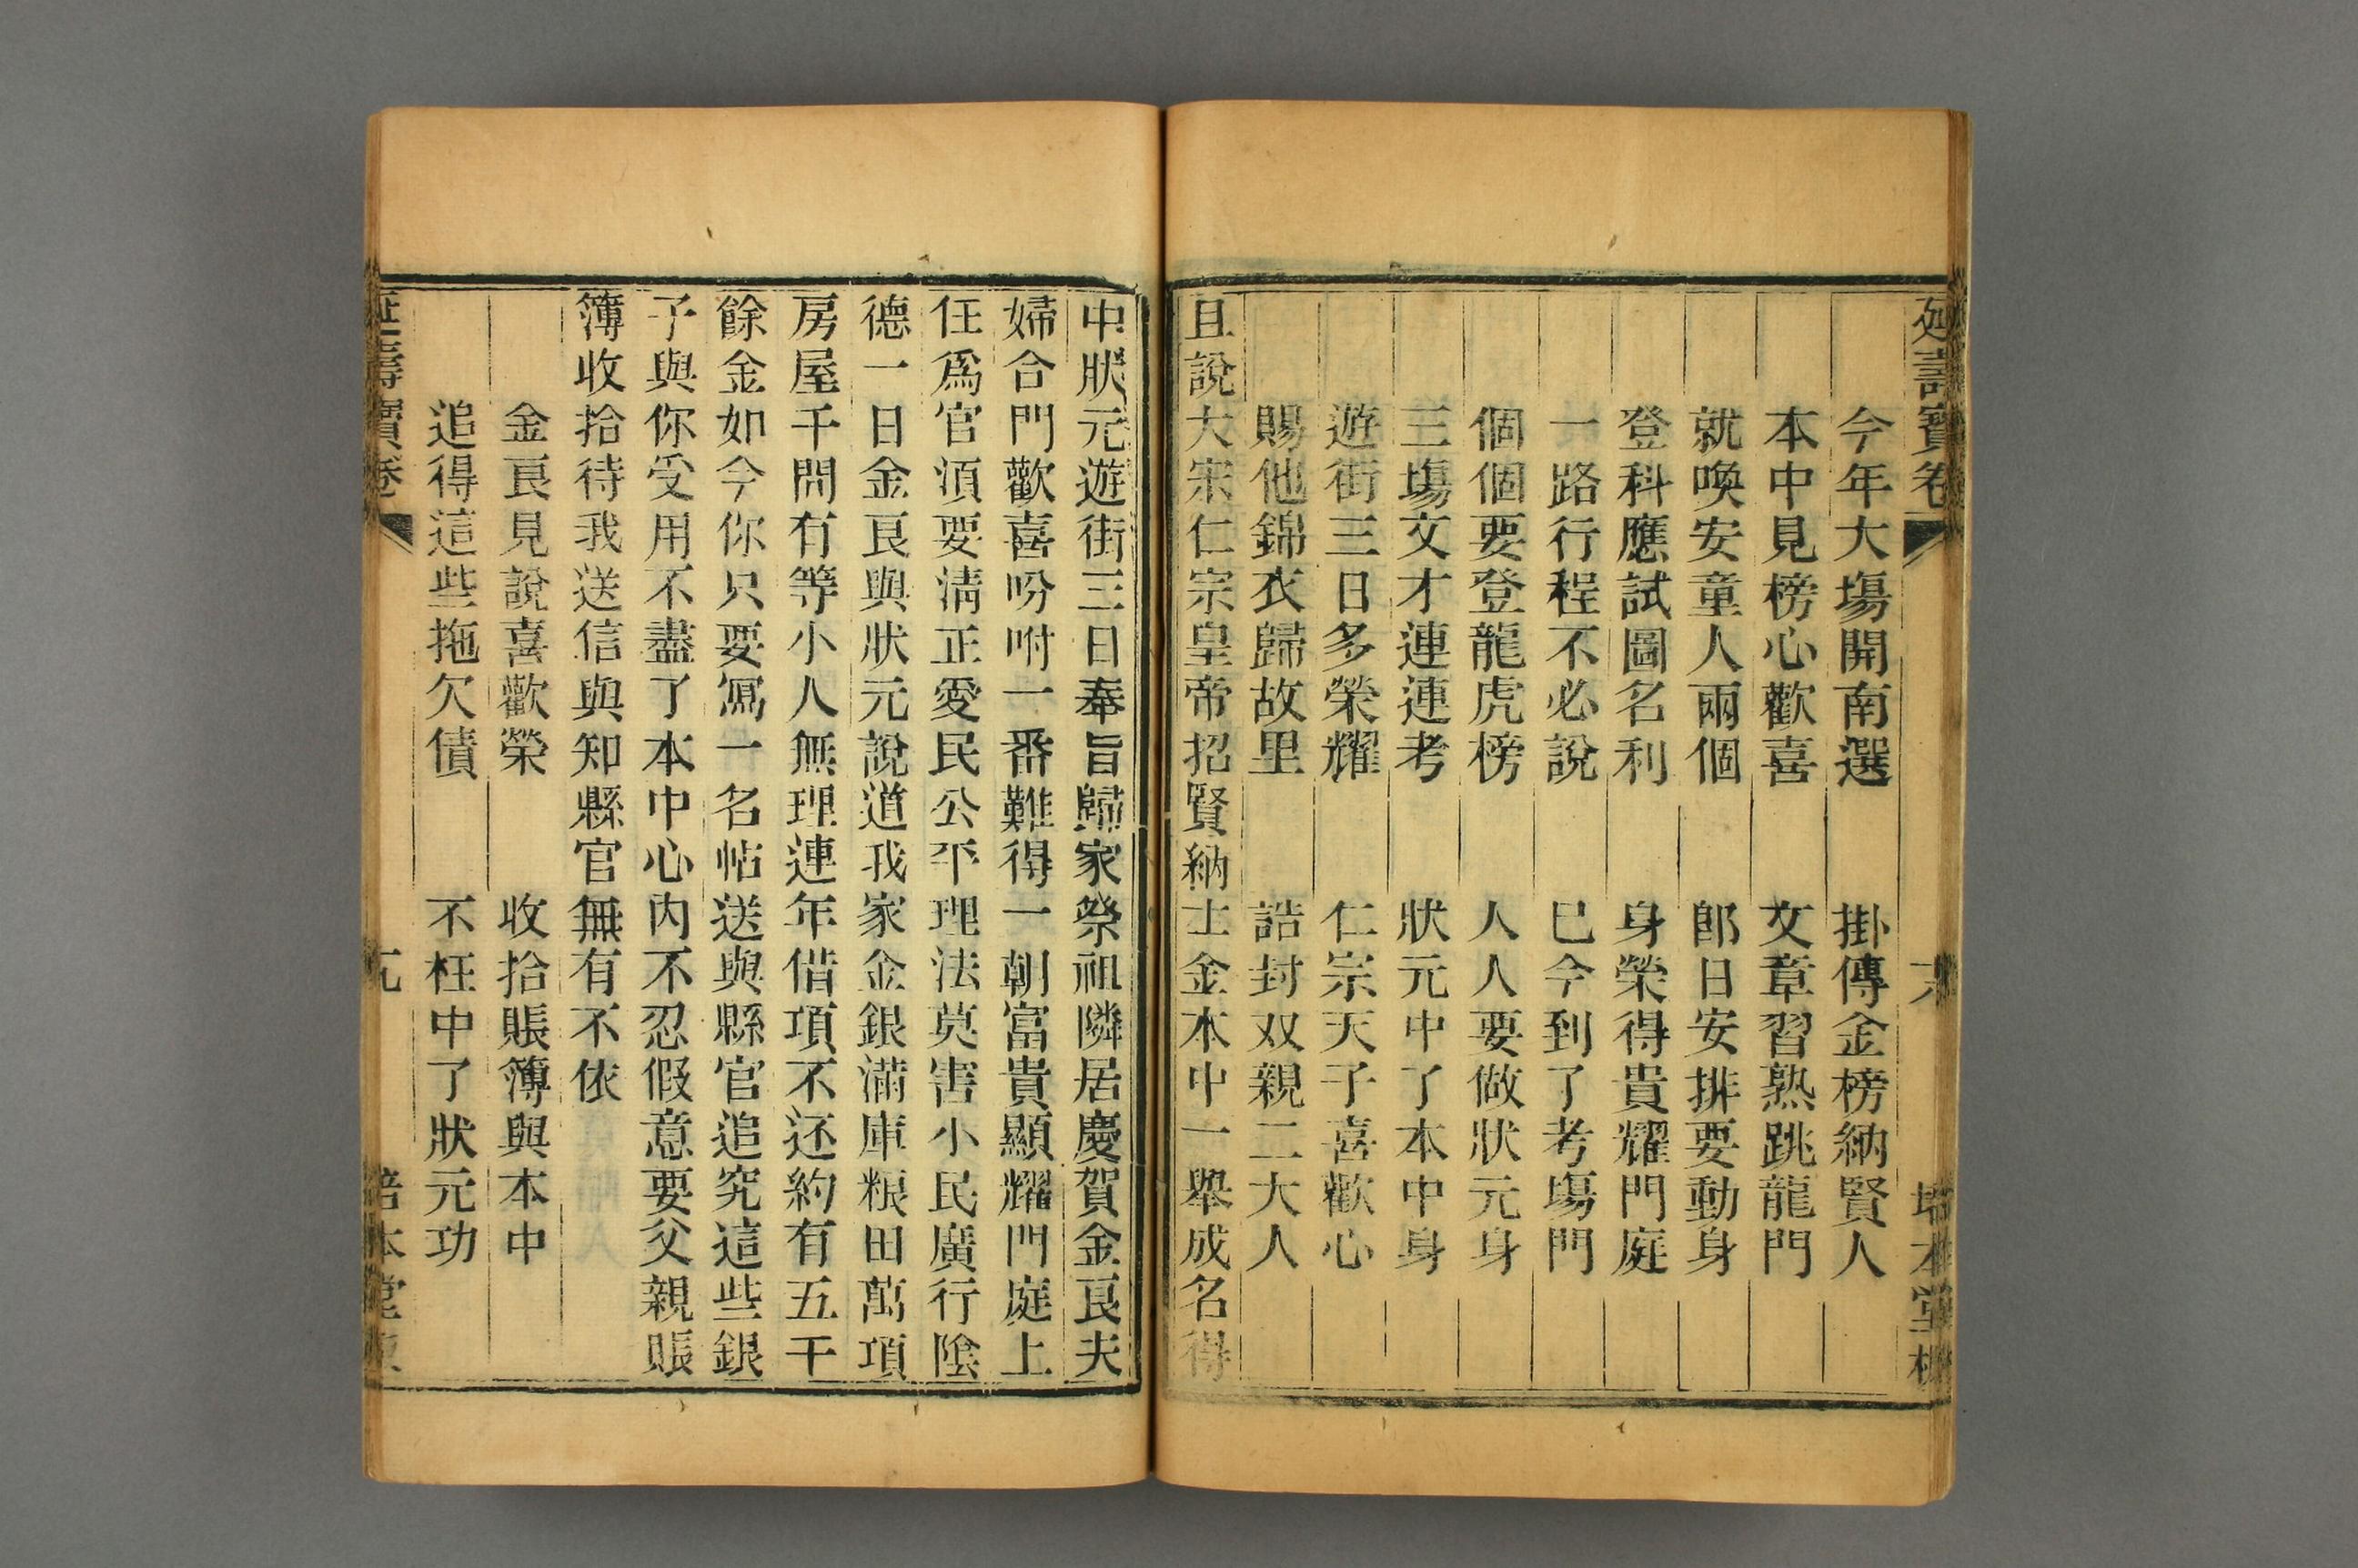 延壽寶卷
培本堂
今年大塲開南選 掛傳金榜納賢人
本中見榜心歡喜 文章習熟跳龍門
就喚安童人兩個 郎日安排要動身
登科應試圖名利 身榮得貴耀門庭
一路行程不必說 已今到了考塲門
個個要登龍虎榜 人人要做狀元身
三塲文才連連考 狀元中了本中身
遊街三日多榮耀 仁宗天子喜歡心
賜他錦衣歸故里 誥封双親二大人
且說大宋仁宗皇帝招賢納士金本中一舉成名得
中狀元遊街三日奉旨歸家祭祖隣居慶賀金良夫
婦合門歡喜吩咐一番難得一朝富貴顯耀門庭上
任爲官湏要清正愛民公平理法莫害小民廣行陰
德一日金良與狀元說道我家金銀滿庫粮田萬項
房屋千間有等小人無理連年借項不还約有五千
餘金如今你只要寫一名帖送與縣官追究這些銀
子與你受用不盡了本中心內不忍假意要父親賬
簿收拾待我送信與知縣官無有不依
金良見說喜歡榮 收拾賬簿與本中
追得這些拖欠債 不枉中了狀元功
壽寶卷
本堂